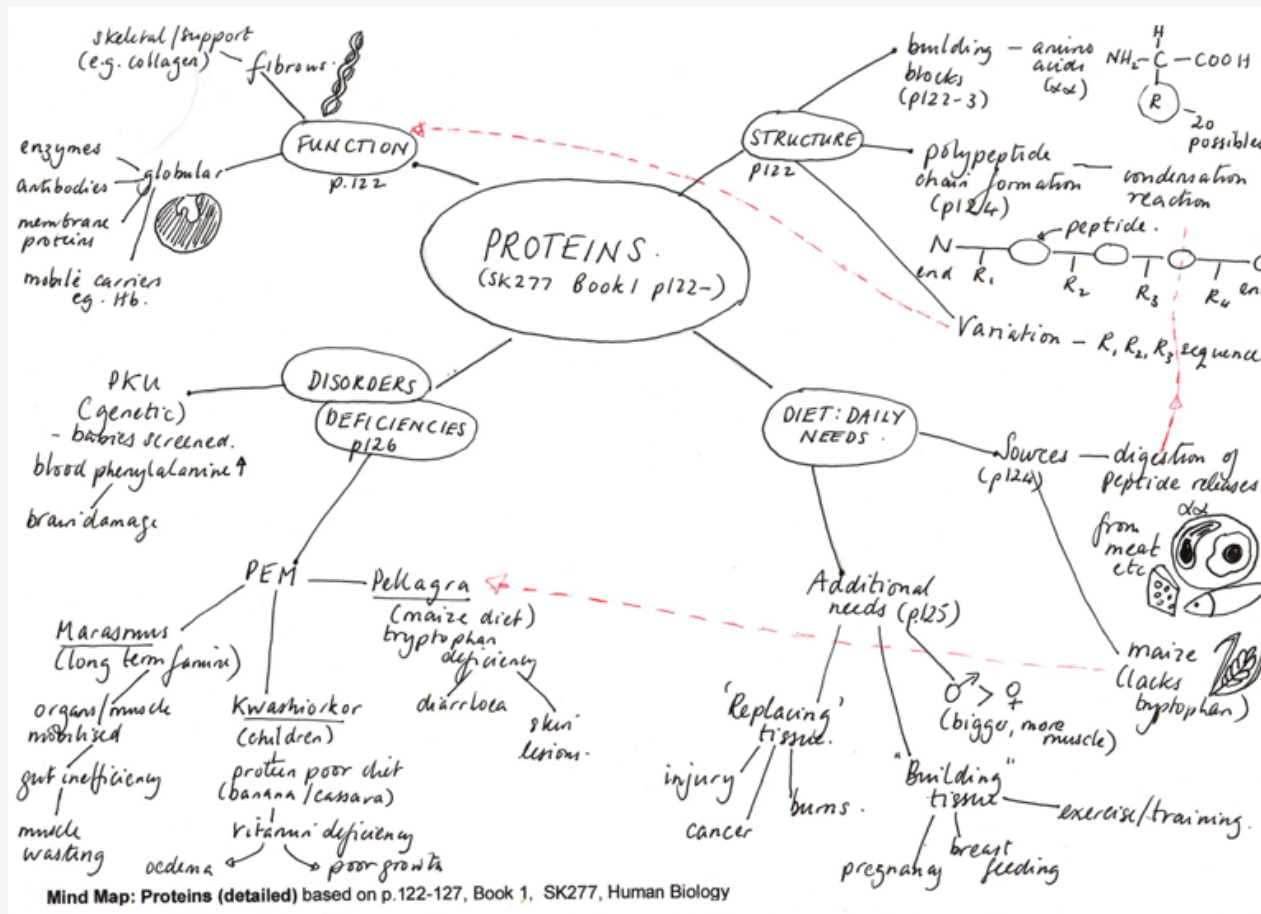 PROTEINS.
(SK277 Book 1 p122-)
FUNCTION
p.122
fibrous
skeletal/support
(e.g. collagen)
globular
enzymes
antibodies
membrane
proteins
mobile carriers
eg. Hb.
STRUCTURE
p122
building
blocks
(p122-3)
amino
acids
(αα)
H
NH₂-C-COOH
R
20
possible
polypeptide
chain formation
(p124)
condensation
reaction
peptide.
N
end
R₁
R₂
R₃
R₄
C
en
Variation - R₁, R₂, R₃ sequence
DISORDERS
DEFICIENCIES
p126
PKU
(genetic)
- babies screened.
blood phenylalanine ↑
brain damage
PEM
Marasmus
(long term famine)
organs/muscle
mobilised
gut inefficiency
muscle
wasting
Kwashiorkor
(children)
protein poor diet
(banana/cassava)
vitamin deficiency
oedema
poor growth
Pellagra
(maize diet)
tryptophan
deficiency
diarrhoea
skin
lesions.
DIET: DAILY
NEEDS.
Sources
(p124)
digestion of
peptide releases
αα
from
meat
etc
maize
(lacks
tryptophan)
Additional
needs (p.125)
♂ > ♀
(bigger, more
muscle)
'Replacing'
tissue.
injury
cancer
burns.
"Building"
tissue
pregnancy
breast
feeding
exercise/training.
Mind Map: Proteins (detailed) based on p.122-127, Book 1, SK277, Human Biology